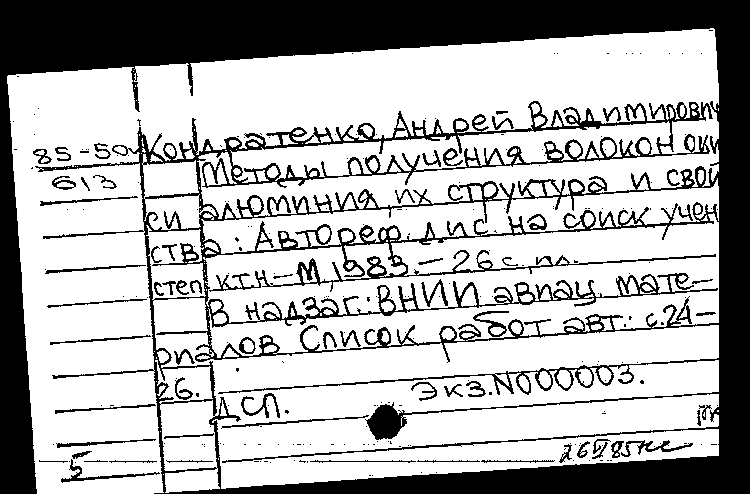 85-504 Кондратенко, Андрей Владимирович
613 Методы получения волокон оки
си алюминия, их структура и свой
ства : Автореф. дис. на соиск учен
степ к.т.н. - М, 1983. - 26 с., ил.
В надзаг.: ВНИИ авиац. мате-
риалов Список работ авт.: с.24-
26.
ДСП. Экз.N000003.
5